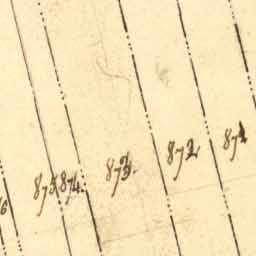 6
875
874.
873.
872.
871